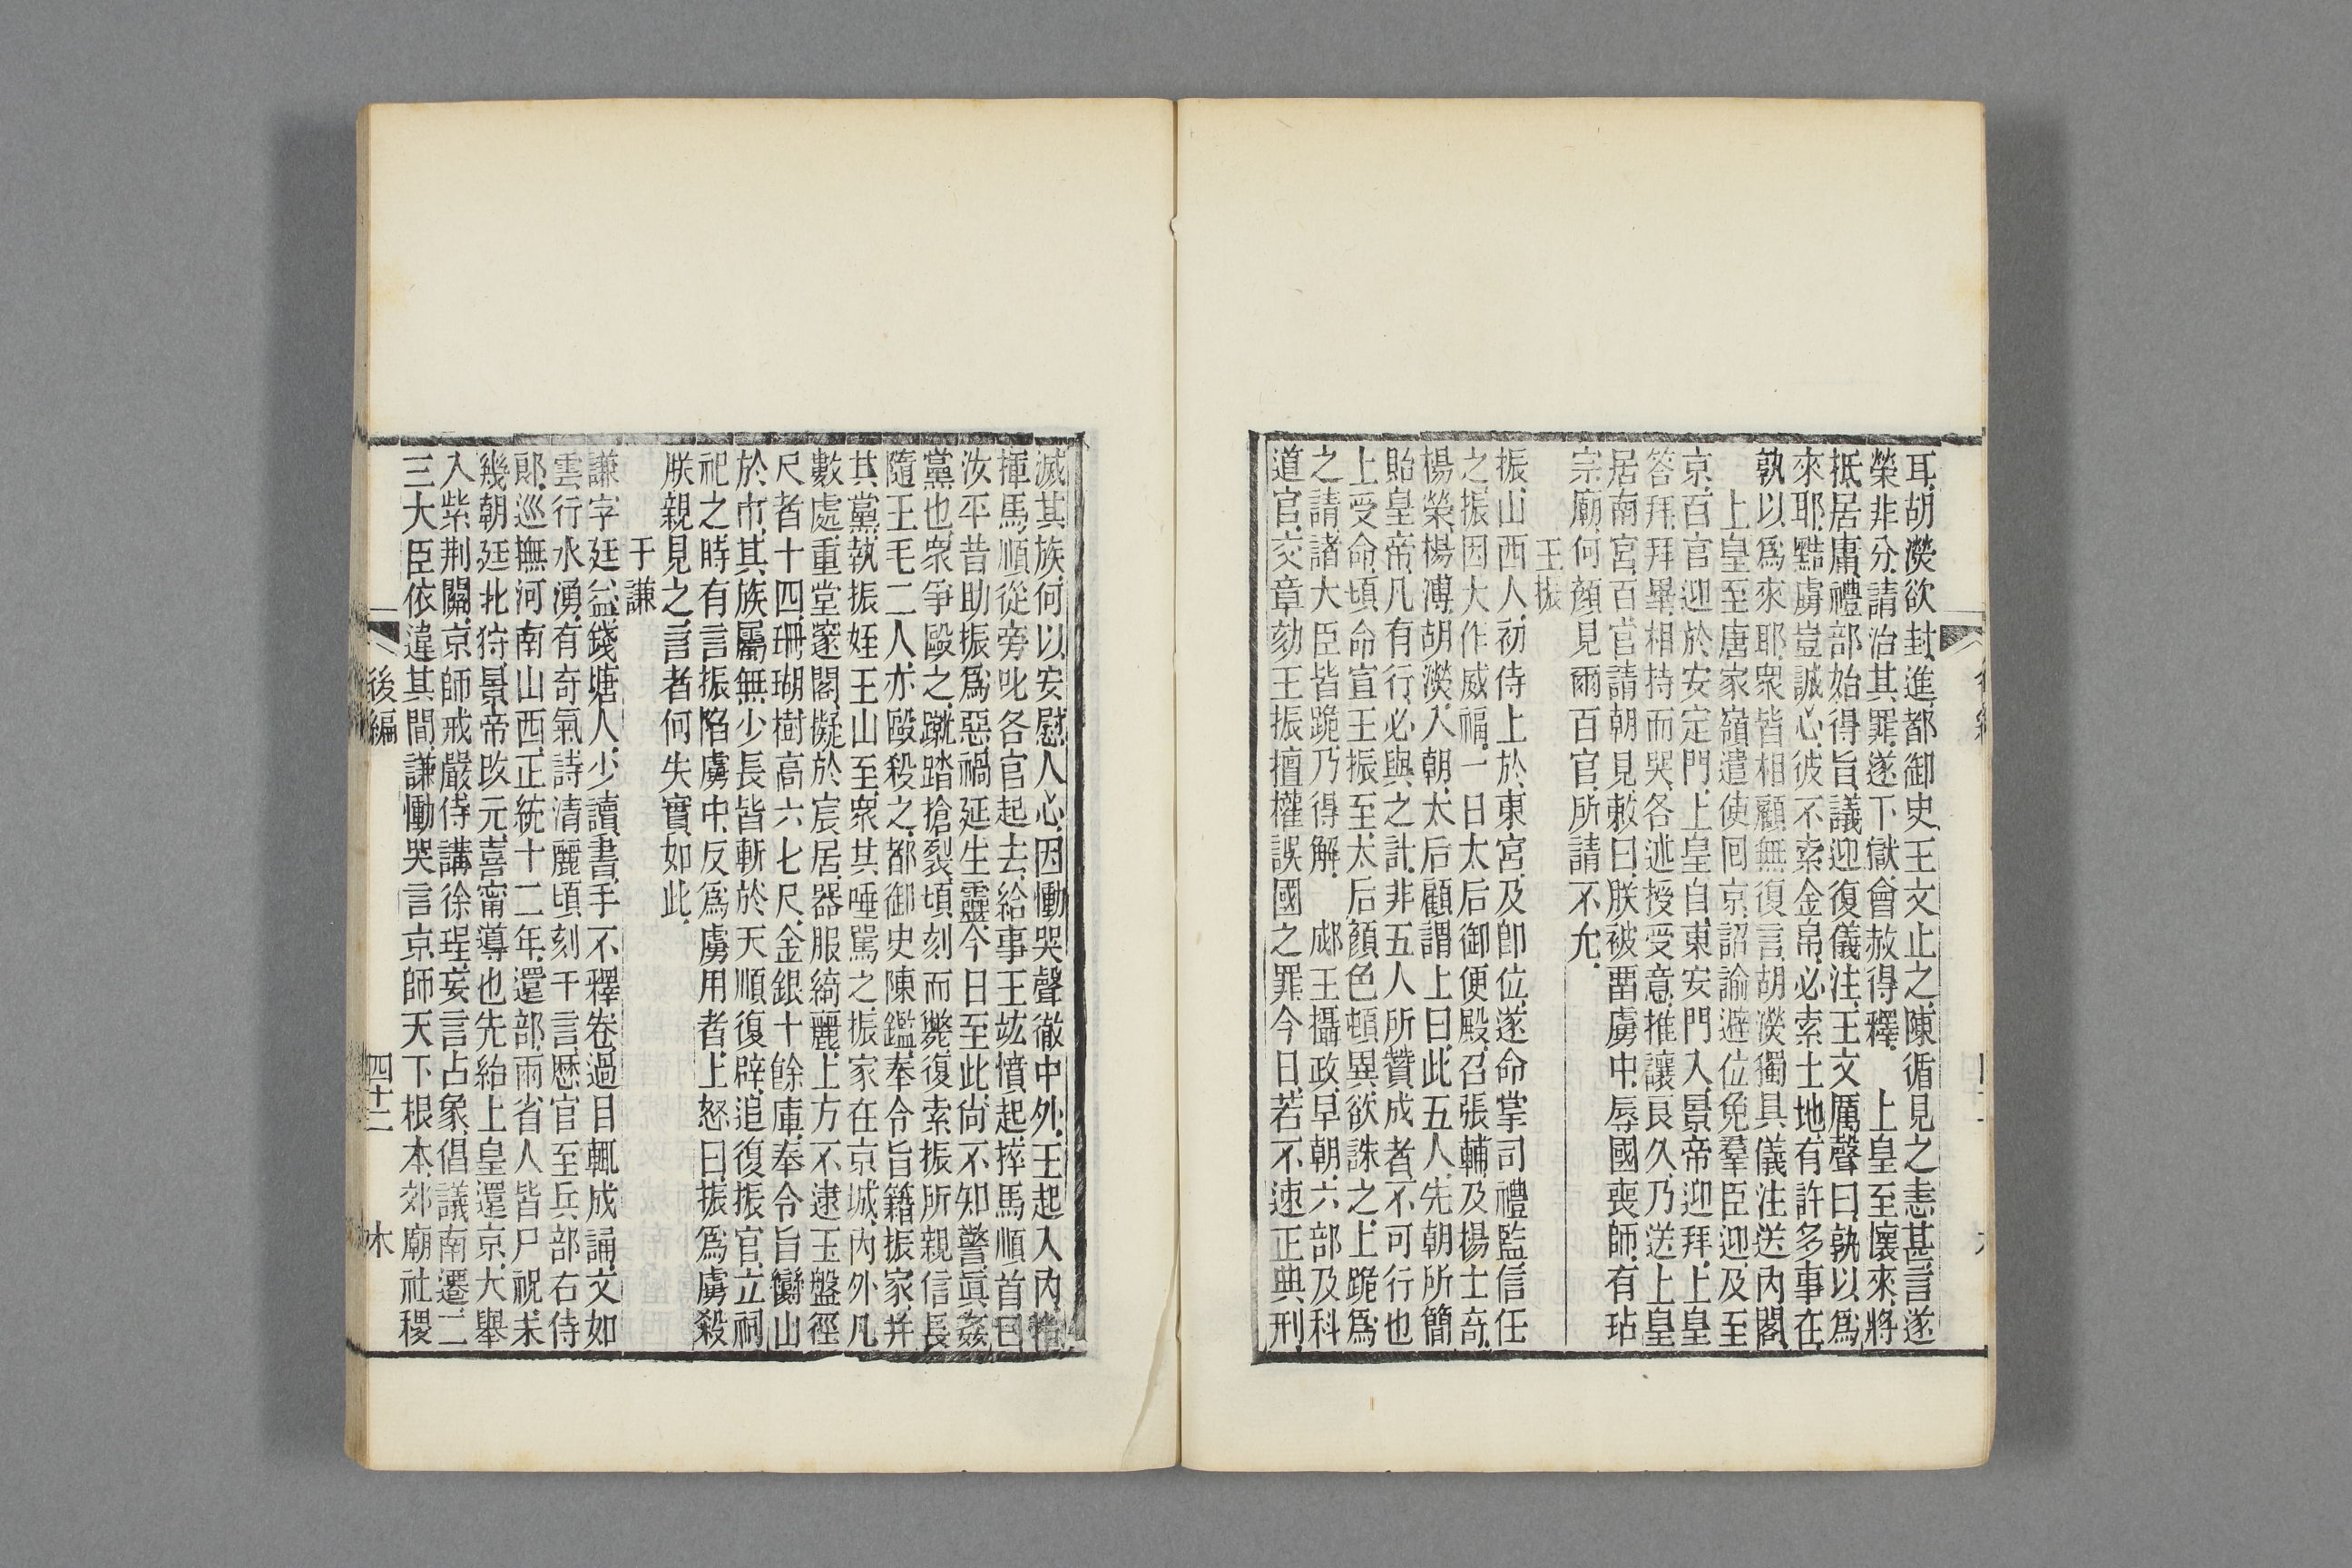 耳、胡濙欲封進、都御史王文止之、陳循見之恚甚、言遂
榮非分、請治其罪、遂下獄、會赦得釋、　上皇至懷來、將
抵居庸、禮部始得旨、議迎復儀注、王文厲聲曰、孰以爲
來耶、黠虜豈誠心、彼不索金帛、必索土地、有許多事在、
孰以爲來耶、衆皆相顧無復言、胡濙獨具儀注送內閣、
上皇至唐家嶺、遣使囘京、詔諭避位、免羣臣迎、及至
京、百官迎於安定門、上皇自東安門入、景帝迎拜、上皇
答拜、拜畢、相持而哭、各述授受意、推讓良久、乃送上皇
居南宮、百官請朝見、敕曰、朕被畱虜中、辱國喪師、有玷
宗廟、何顏見爾百官、所請不允、
王振
振、山西人、初侍上於東宮、及卽位、遂命掌司禮監、信任
之、振因大作威福、一日太后御便殿、召張輔、及楊士奇、
楊榮、楊溥、胡濙、入朝、太后顧謂上曰、此五人、先朝所簡
貽皇帝、凡有行、必與之計、非五人所贊成者、不可行也
上受命、頃命宣王振至、太后顏色頓異、欲誅之、上跪爲
之請、諸大臣皆跪、乃得解、　郕王攝政、早朝、六部及科
道官、交章劾王振擅權誤國之罪、今日若不速正典刑、
滅其族、何以安慰人心、因慟哭聲徹中外、王起入內、指
揮馬順從旁叱各官起去、給事王竑憤起、捽馬順首曰
汝平昔助振爲惡、禍延生靈、今日至此、尙不知警、眞姦
黨也、衆爭毆之、蹴踏搶裂、頃刻而斃、復索振所親信長
隨王毛二人、亦毆殺之、都御史陳鑑、奉令旨籍振家、幷
其黨、執振姪王山至、衆共唾罵之、振家在京城、內外凡
數處、重堂邃閣、擬於宸居、器服綺麗、上方不逮、玉盤徑
尺者十四、珊瑚樹高六七尺、金銀十餘庫、奉令旨臠山
於市、其族屬無少長皆斬於天順復辟、追復振官、立祠
祀之、時有言振陷虜中、反爲虜用者、上怒曰、振爲虜殺
朕親見之、言者何失實如此、
于謙
謙字廷益、錢塘人、少讀書、手不釋卷、過目輒成誦、文如
雲行水湧、有奇氣、詩清麗、頃刻千言、歷官至兵部右侍
郎、巡撫河南山西、正統十二年、還部、兩省人皆尸祝、未
幾朝廷北狩、景帝改元、喜甯導也先紿上皇還京、大舉
入紫荆關、京師戒嚴、侍講徐珵、妄言占象、倡議南遷、二
三大臣依違其間、謙慟哭言京師天下根本、郊廟社稷
後編　四十二　木